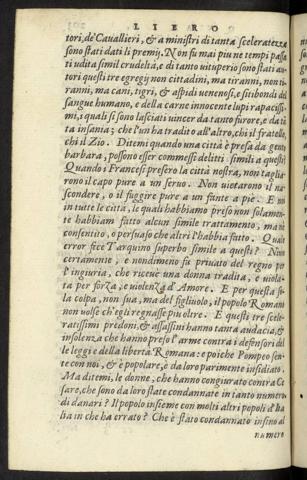 LIBRO
tori, de' Cavallieri, & a ministri di tanta sceleratezza
sono stati dati li premij. Non fu mai piu ne tempi passa
ti udita simil crudeltà, e di tanto uituperio sono stati au
tori questi tre egregij non cittadini, ma tiranni, non ti-
ranni, ma cani, tigri, & aspidi uenenosi, e sitibondi del
sangue humano, e della carne innocente lupi rapacissi-
mi, i quali si sono lasciati uincer da tanto furore, e da tã
ta insania; che l'un ha tradito all'altro, chi il fratello,
chi il Zio. Ditemi quando una città è presa da gente
barbara, possono esser commessi delitti simili a questi?
Quando i Francesi presero la città nostra, non taglia-
rono il capo pure a un seruo. Non uietarono il na
scondere, o il fuggire pure a un fante a piè. E noi
in tutte le città, le quali habbiamo preso non solamen-
te habbiam fatto alcun simile trattamento, ma ne
consentito, o persuaso che altri l'habbia fatto. Quale
error fece Tarquino superbo simile a questi? Niun
certamente, e nondimeno fu priuato del regno per
l'ingiuria, che riceuè una donna tradita, e uiola-
ta per forza, e uiolenza d'Amore. E per questa so
la colpa, non sua, ma del figliuolo, il popolo Romano
non uolse ch'egli regnasse piu oltre. E questi tre scele-
ratissimi predoni, & assassini hanno tanta audacia, &
insolenza che hanno preso l'arme contra i defensori del
le leggi e della libertà Romana: e poiche Pompeo sen-
te con noi, & è popolare, è da loro parimente insidiato.
Ma ditemi, le donne, che hanno congiurato contra Ce
sare, che sono da loro state condannate in tanto numero
di danari? Il popolo insieme con molti altri popoli d'Ita
lia in che ha errato? Che è stato condannato insino al
numero